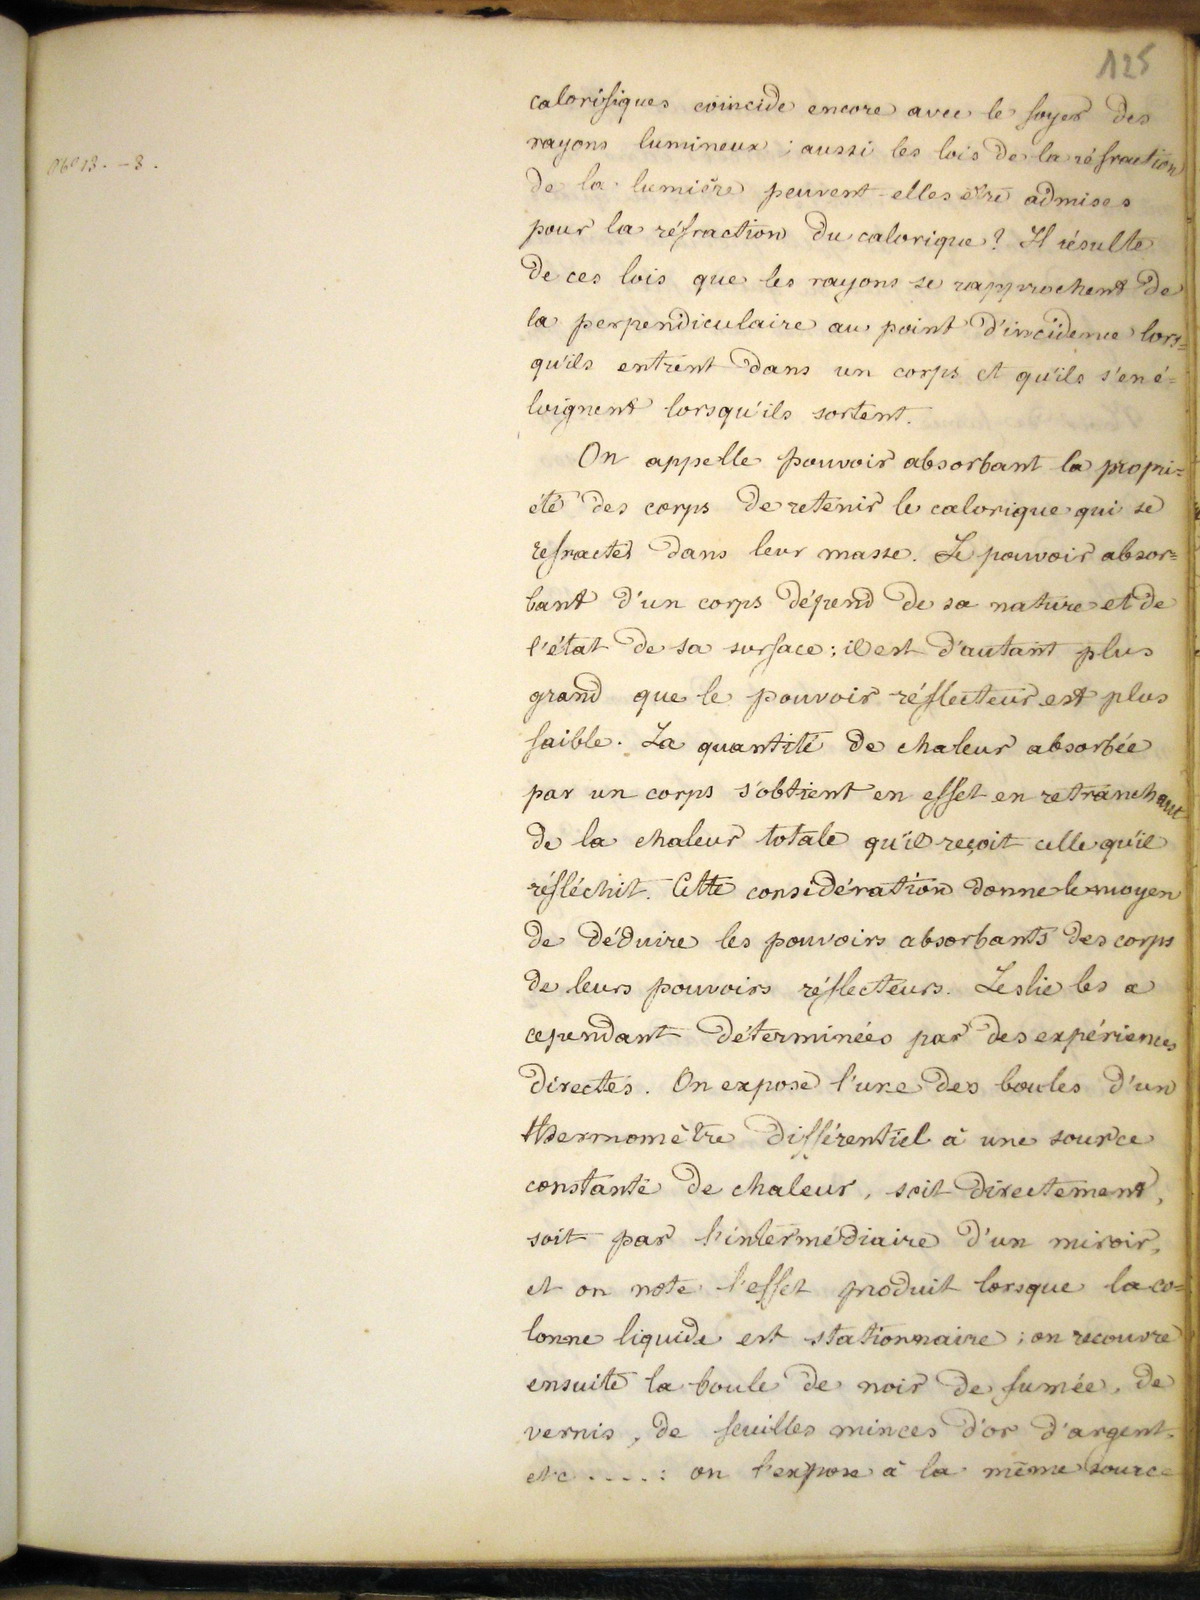 125
calorifiques coincide encore avec le foyer des
rayons lumineux ; aussi les lois de la réfraction
de la lumière peuvent-elles être admises
pour la réfraction du calorique ? Il résulte
de ces lois que les rayons se rapprochent de
la perpendiculaire au point d'incidence lors=
qu'ils entrent dans un corps et qu'ils s'en é=
loignent lorsqu'ils sortent.
On appelle pouvoir absorbant la propri=
été des corps de retenir le calorique qui se
refracte dans leur masse. Le pouvoir absor=
bant d'un corps dépend de sa nature et de
l'état de sa surface ; il est d'autant plus
grand que le pouvoir réflecteur est plus
faible. La quantité de chaleur absorbée
par un corps s'obtient en effet en retranchant
de la chaleur totale qu'il reçoit celle qu'il
réfléchit. Cette considération donne le moyen
de déduire les pouvoirs absorbants des corps
de leurs pouvoirs réflecteurs. Leslie les a
cependant déterminées par des expériences
directes. On expose l'une des boules d'un
thermomètre différentiel à une source
constante de chaleur, soit directement,
soit par l'intermédiaire d'un miroir,
et on note l'effet produit lorsque la co=
lonne liquide est stationnaire ; on recouvre
ensuite la boule de noir de fumée, de
vernis, de feuilles minces d'or d'argent.
etc ....: on l'expose à la même source